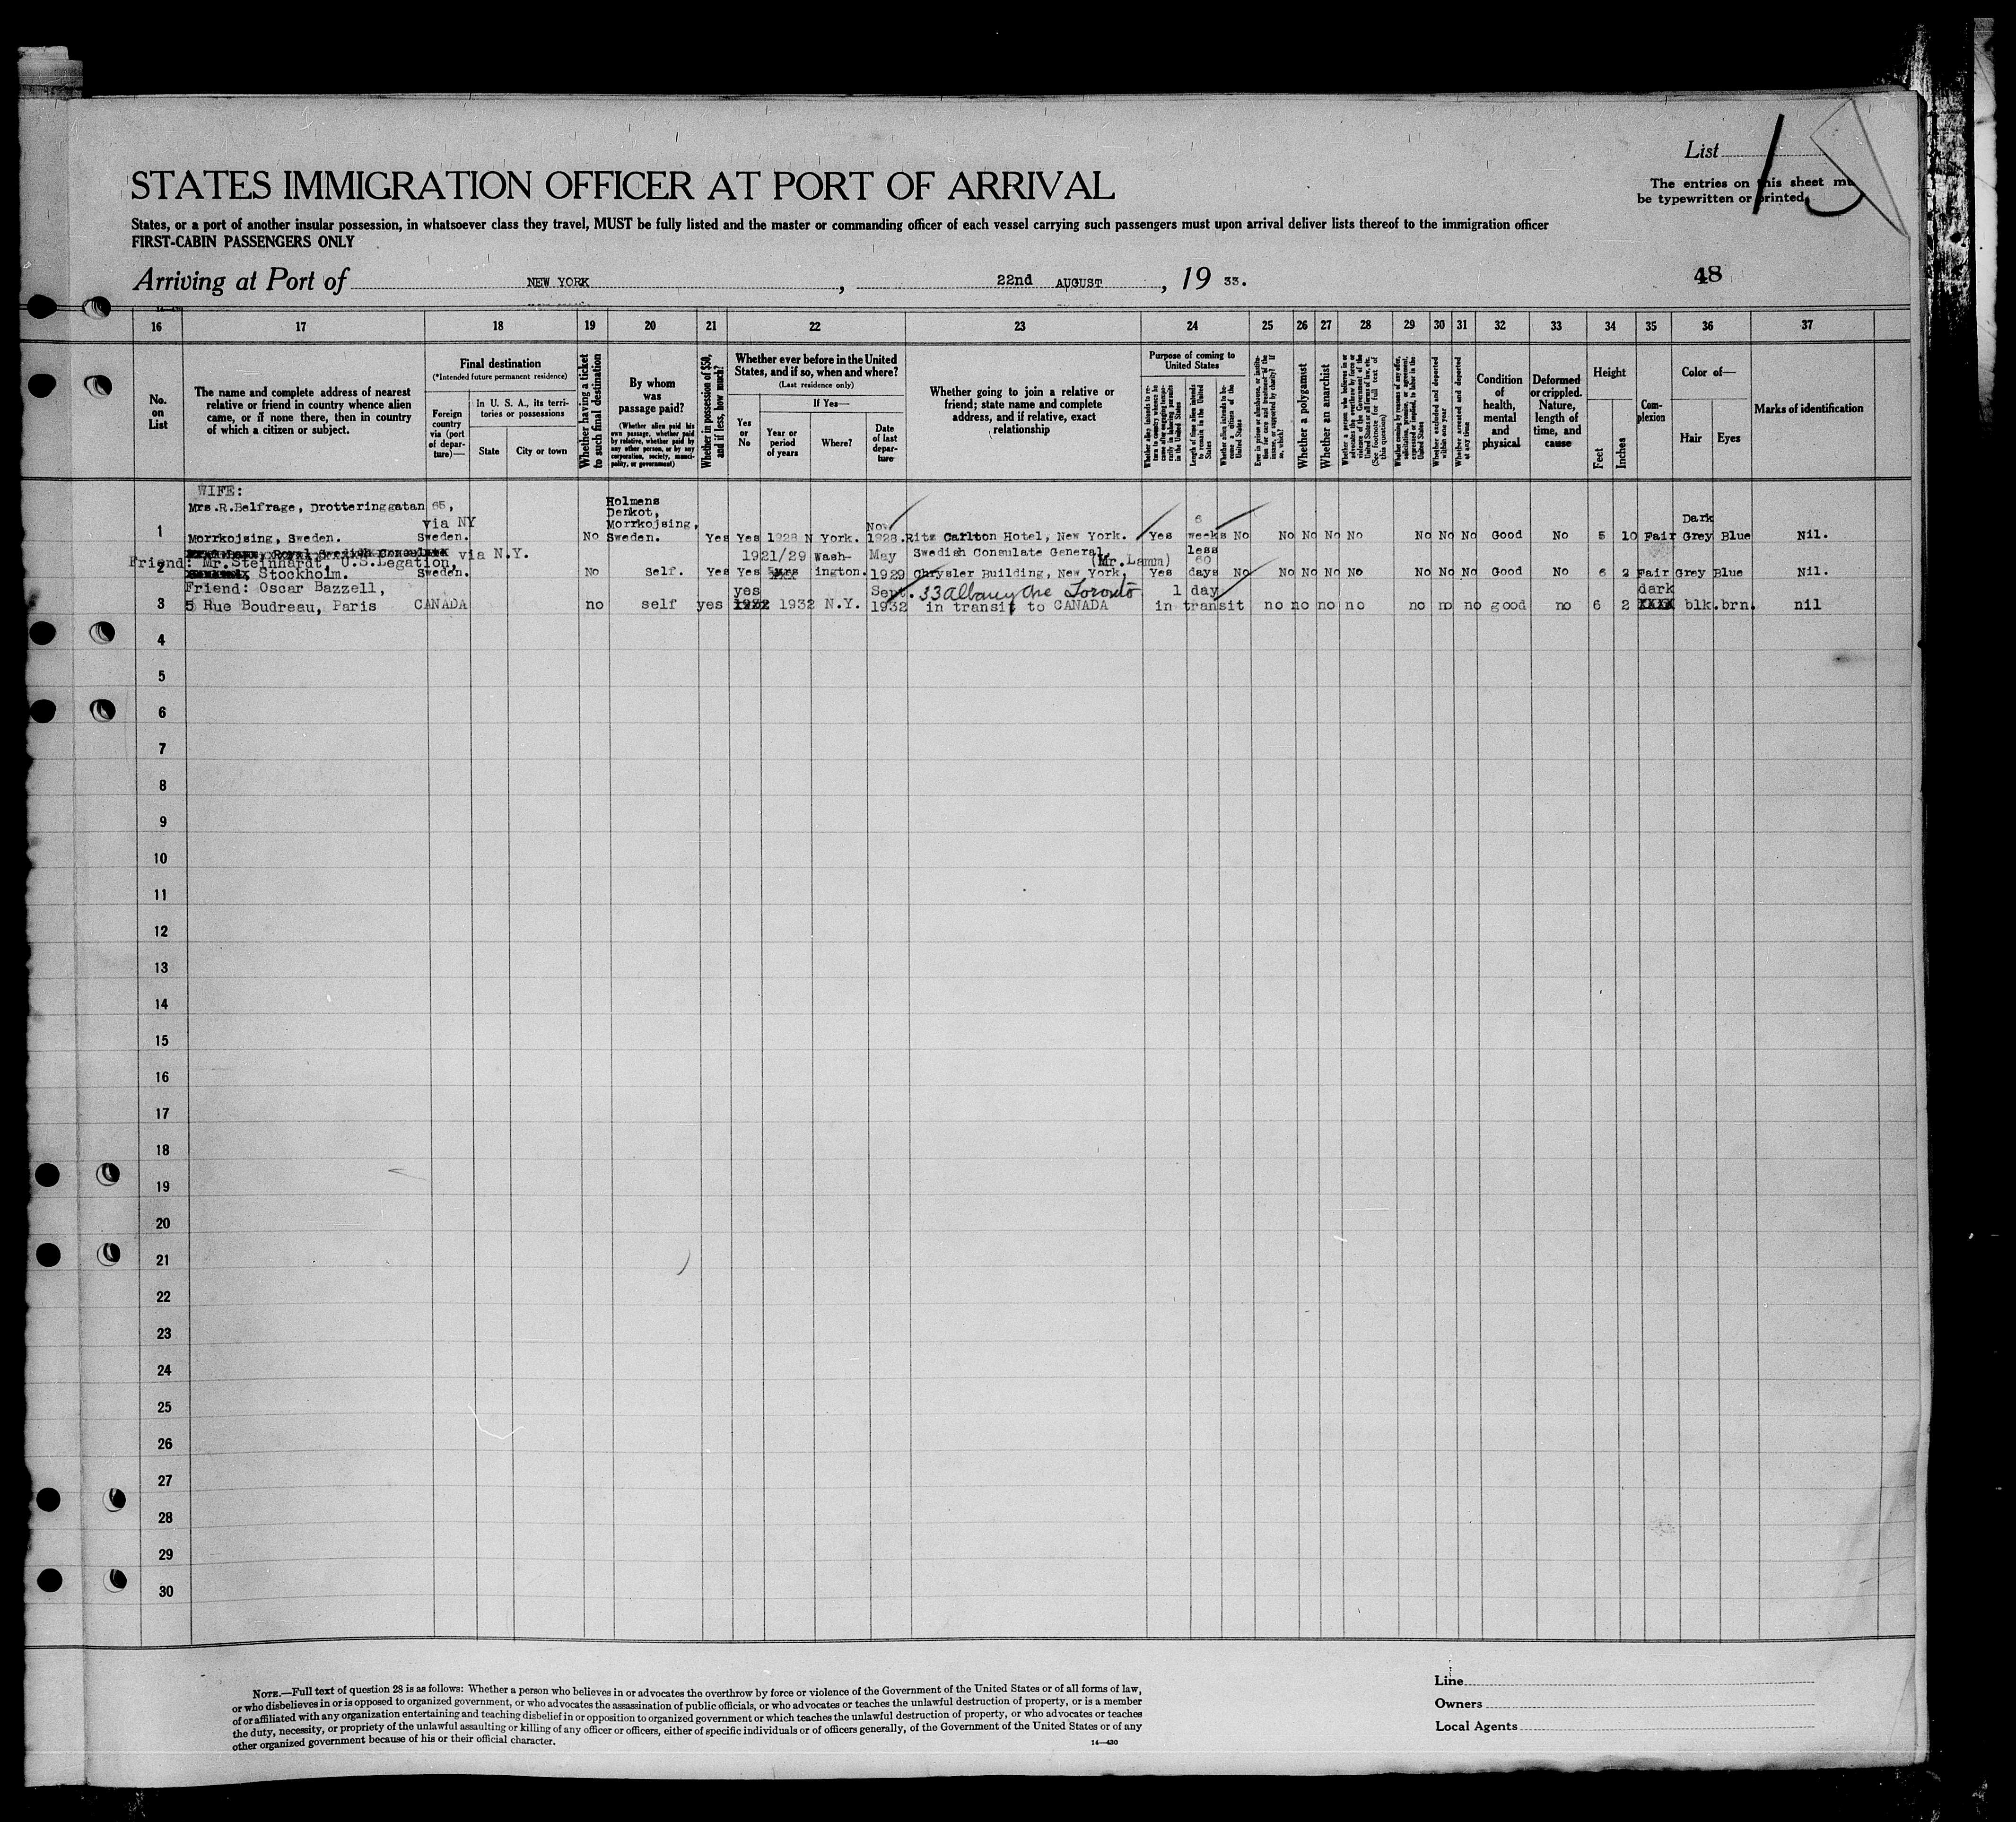 List
The entries on this sheet mu
be typewritten or printed
STATES IMMIGRATION OFFICER AT PORT OF ARRIVAL
States, or a port of another insular possession, in whatsoever class they travel, MUST be fully listed and the master or commanding officer of each vessel carrying such passengers must upon arrival deliver lists thereof to the immigration officer
FIRST-CABIN PASSENGERS ONLY
Arriving at Port of NEW YORK, 22nd AUGUST, 19 33.
48
16 17 18 19 20 21 22 23 24 25 26 27 28 29 30 31 32 33 34 35 36 37
No. on List
The name and complete address of nearest relative or friend in country whence alien came, or if none there, then in country of which a citizen or subject.
Final destination
(*Intended future permanent residence)
Foreign country via (port of departure)—
In U. S. A., its territories or possessions
State
City or town
Whether having a ticket to such final destination
By whom was passage paid?
(Whether alien paid his own passage, whether paid by relative, whether paid by any other person, or by any corporation, society, municipality, or government)
Whether in possession of $50, and if less, how much?
Whether ever before in the United States, and if so, when and where?
(Last residence only)
Yes or No
If Yes—
Year or period of years
Where?
Date of last departure
Whether going to join a relative or friend; state name and complete address, and if relative, exact relationship
Purpose of coming to United States
Length of time alien intends to remain in the United States
Whether a polygamist
Whether an anarchist
Whether excluded and deported within one year
Whether arrested and deported at any time
Condition of health, mental and physical
Deformed or crippled. Nature, length of time, and cause
Height
Feet
Inches
Complexion
Color of—
Hair
Eyes
Marks of identification
WIFE:
Mrs.R.Belfrage, Drotteringgatan 65,
1 Morrkojsing, Sweden. via NY Sweden. No Holmens Denkot, Morrkojsing, Sweden. Yes Yes 1928 N York. Nov 1928. Ritz Carlton Hotel, New York. Yes 6 weeks No No No No No No No No Good No 5 10 Fair Dark Grey Blue Nil.
Friend: Mr.Steinhardt, U.S.Legation, via N.Y.
2 Stockholm. Sweden. No Self. Yes Yes 1921/29 Washington. May 1929 Swedish Consulate General, (Mr.Lamm) Chrysler Building, New York, Yes less 60 days No No No No No No No No Good No 6 2 Fair Grey Blue Nil.
Friend: Oscar Bazzell,
3 5 Rue Boudreau, Paris CANADA no self yes yes 1932 N.Y. Sept. 1932 33 Albany Ave Toronto in transit to CANADA 1 day in transit no no no no no no no good no 6 2 dark blk. brn. nil
4
5
6
7
8
9
10
11
12
13
14
15
16
17
18
19
20
21
22
23
24
25
26
27
28
29
30
NOTE.—Full text of question 28 is as follows: Whether a person who believes in or advocates the overthrow by force or violence of the Government of the United States or of all forms of law,
or who disbelieves in or is opposed to organized government, or who advocates the assassination of public officials, or who advocates or teaches the unlawful destruction of property, or is a member
of or affiliated with any organization entertaining and teaching disbelief in or opposition to organized government or which teaches the unlawful destruction of property, or who advocates or teaches
the duty, necessity, or propriety of the unlawful assaulting or killing of any officer or officers, either of specific individuals or of officers generally, of the Government of the United States or of any
other organized government because of his or their official character.
14—430
Line
Owners
Local Agents